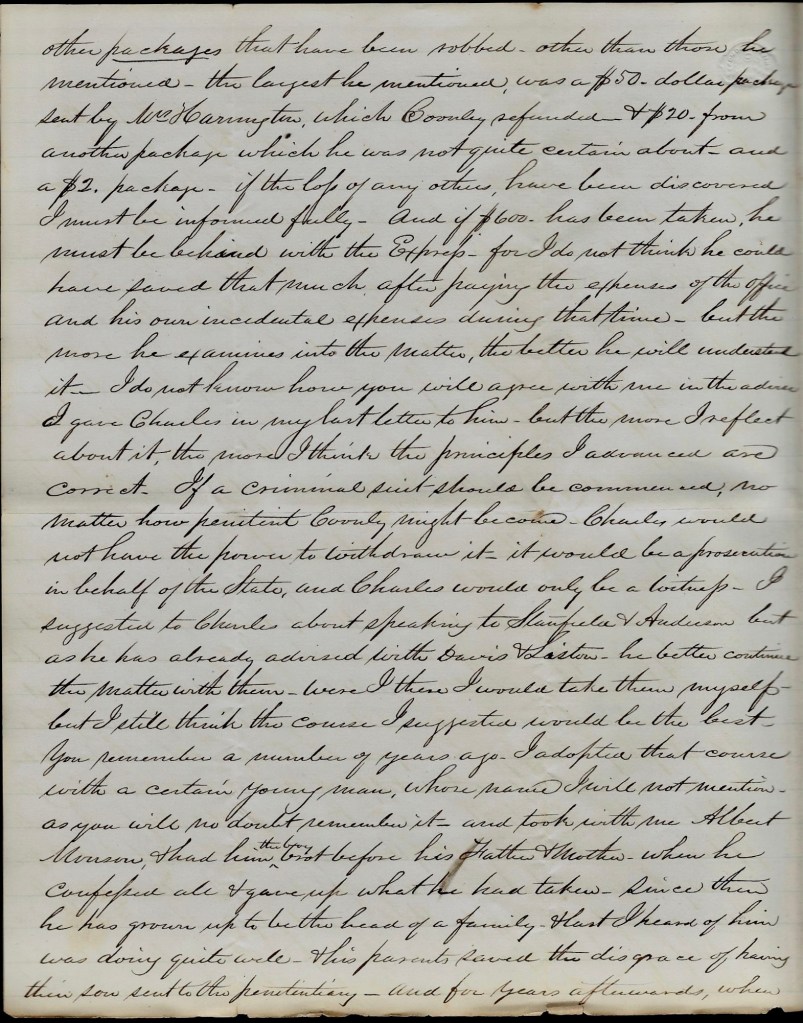 other packages that have been robbed - other than those he
mentioned - the largest he mentioned, was a $50 - dollar package
sent by Mrs Harrington, which Coonley refunded - & $20 - from
another package which he was not quite certain about - and
a $2. package - if the loss of any others, have been discovered
I must be informed fully - And if $600 - has been taken, he
must be behind with the Express - for I do not think he could
have saved that much after paying the expenses of the office
and his own incidental expenses during that time - but the
more he examines into the matter, the better he will understand
it - I do not know how you will agree with me in the advice
I gave Charles in my last letter to him - but the more I reflect
about it, the more I think the principles I advanced are
correct - If a criminal suit should be commenced, no
matter how penitent Coonly might become - Charles would
not have the power to withdraw it - it would be a prosecution
in behalf of the State, and Charles would only be a witness - I
suggested to Charles about speaking to Stanfield & Anderson but
as he has already advised with Davis & Liston - he better continue
the matter with them - were I there I would take them myself -
but I still think the course I suggested would be the best -
You remember a number of years ago - I adopted that course
with a certain young man, whose name I will not mention -
as you will no doubt remember it - and took with me Albert
Monson, & had him the boy brot before his Father & Mother - when he
confessed all & gave up what he had taken - since then
he has grown up to be the head of a family - & last I heard of him
was doing quite well - & his parents saved the disgrace of having
their son sent to the penitentiary - and for years afterwards, when